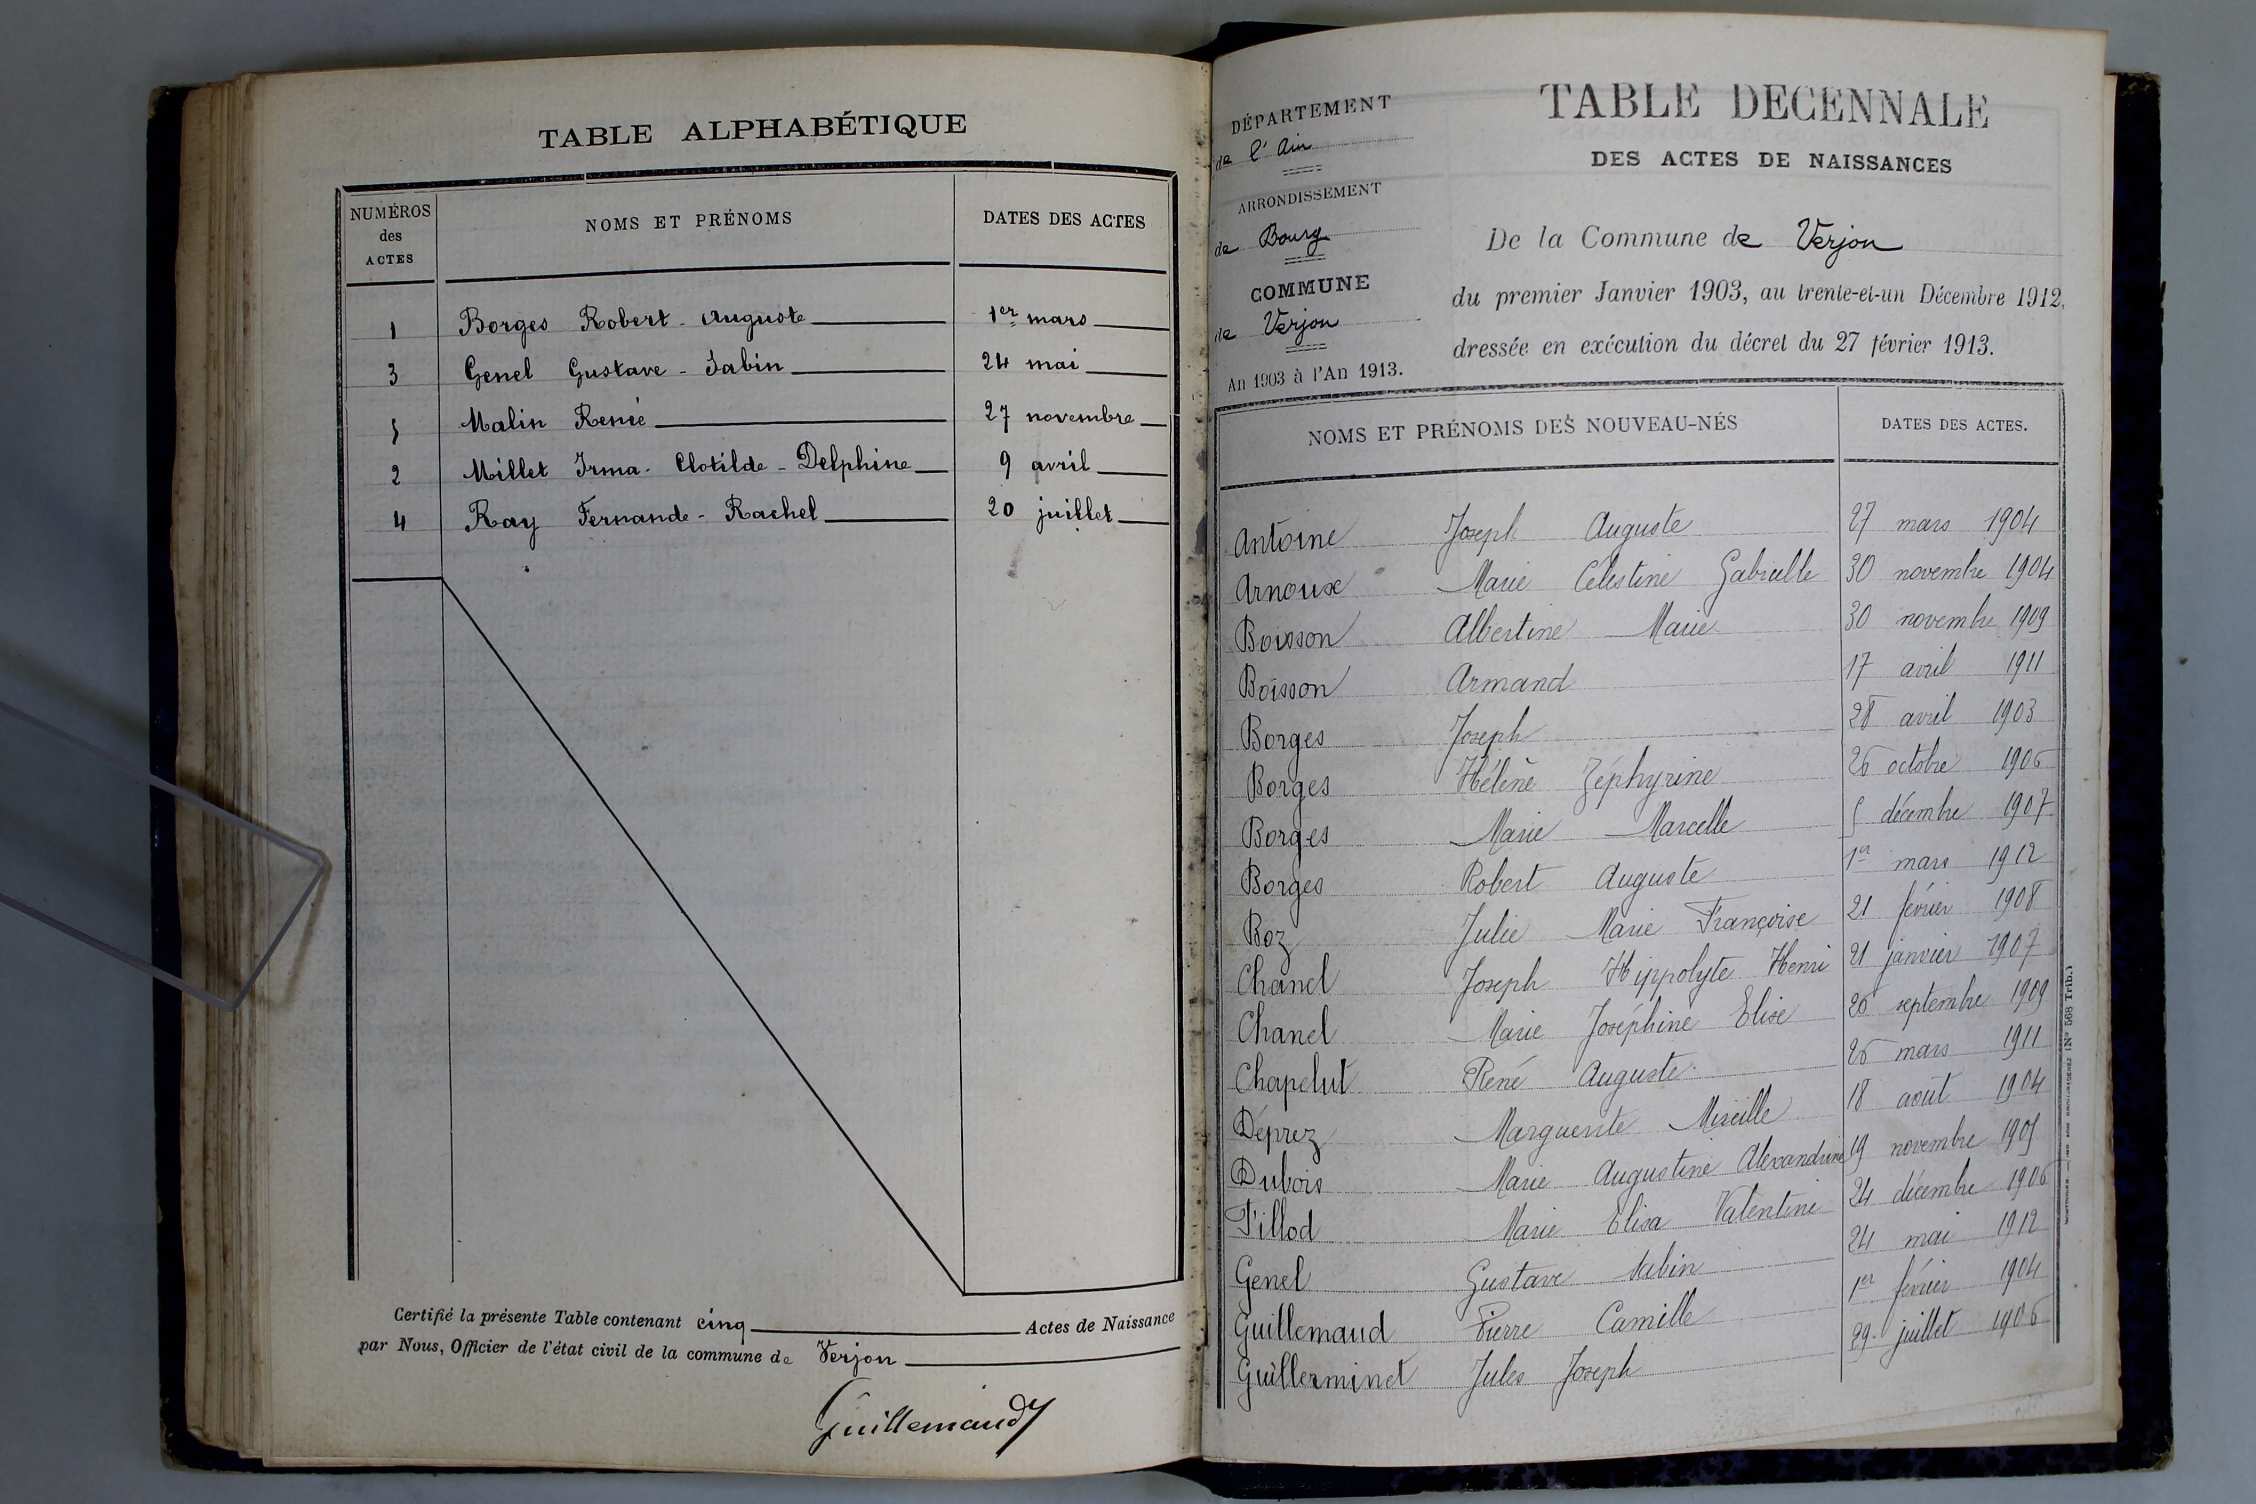 TABLE ALPHABÉTIQUE
NUMÉROS des ACTES NOMS ET PRÉNOMS DATES DES ACTES
1 Borges Robert - Auguste 1er mars
3 Genel Gustave - Sabin 24 mai
5 Malin Renée 27 novembre
2 Millet Irma - Clotilde - Delphine 9 avril
4 Ray Fernande - Rachel 20 juillet
Certifié la présente Table contenant cinq Actes de Naissance
par Nous, Officier de l'état civil de la commune de Verjon
Guillemaud
DÉPARTEMENT
de l'Ain
ARRONDISSEMENT
de Bourg
COMMUNE
de Verjon
An 1903 à l'An 1913.
TABLE DECENNALE
DES ACTES DE NAISSANCES
De la Commune de Verjon
du premier Janvier 1903, au trente-et-un Décembre 1912,
dressée en exécution du décret du 27 février 1913.
NOMS ET PRÉNOMS DES NOUVEAU-NÉS DATES DES ACTES.
Antoine Joseph Auguste 27 mars 1904
Arnoux Marie Célestine Gabrielle 30 novembre 1904
Boisson Albertine Marie 30 novembre 1909
Boisson Armand 17 avril 1911
Borges Joseph 28 avril 1903
Borges Hélène Zéphyrine 26 octobre 1906
Borges Marie Marcelle 5 décembre 1907
Borges Robert Auguste 1er mars 1912
Boz Julie Marie Françoise 21 février 1908
Chanel Joseph Hippolyte Henri 21 janvier 1907
Chanel Marie Joséphine Elise 26 septembre 1909
Chapelut René Auguste 26 mars 1911
Déprez Marguerite Mireille 18 août 1904
Dubois Marie Augustine Alexandrine 19 novembre 1905
Fillod Marie Elisa Valentine 24 décembre 1906
Genel Gustave Sabin 24 mai 1912
Guillemaud Pierre Camille 1er février 1904
Guillerminet Jules Joseph 29 juillet 1906
(N° 568 Trib.)